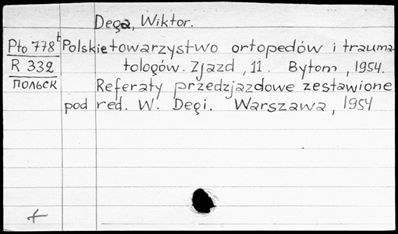 Dega, Wiktor.
Pło 778t Polskie towarzystwo ortopedów i trauma
R 332 tologów. Zjazd, 11. Bytom, 1954.
польск Referaty przedzjazdowe zestawione
pod red. W. Degi. Warszawa, 1954